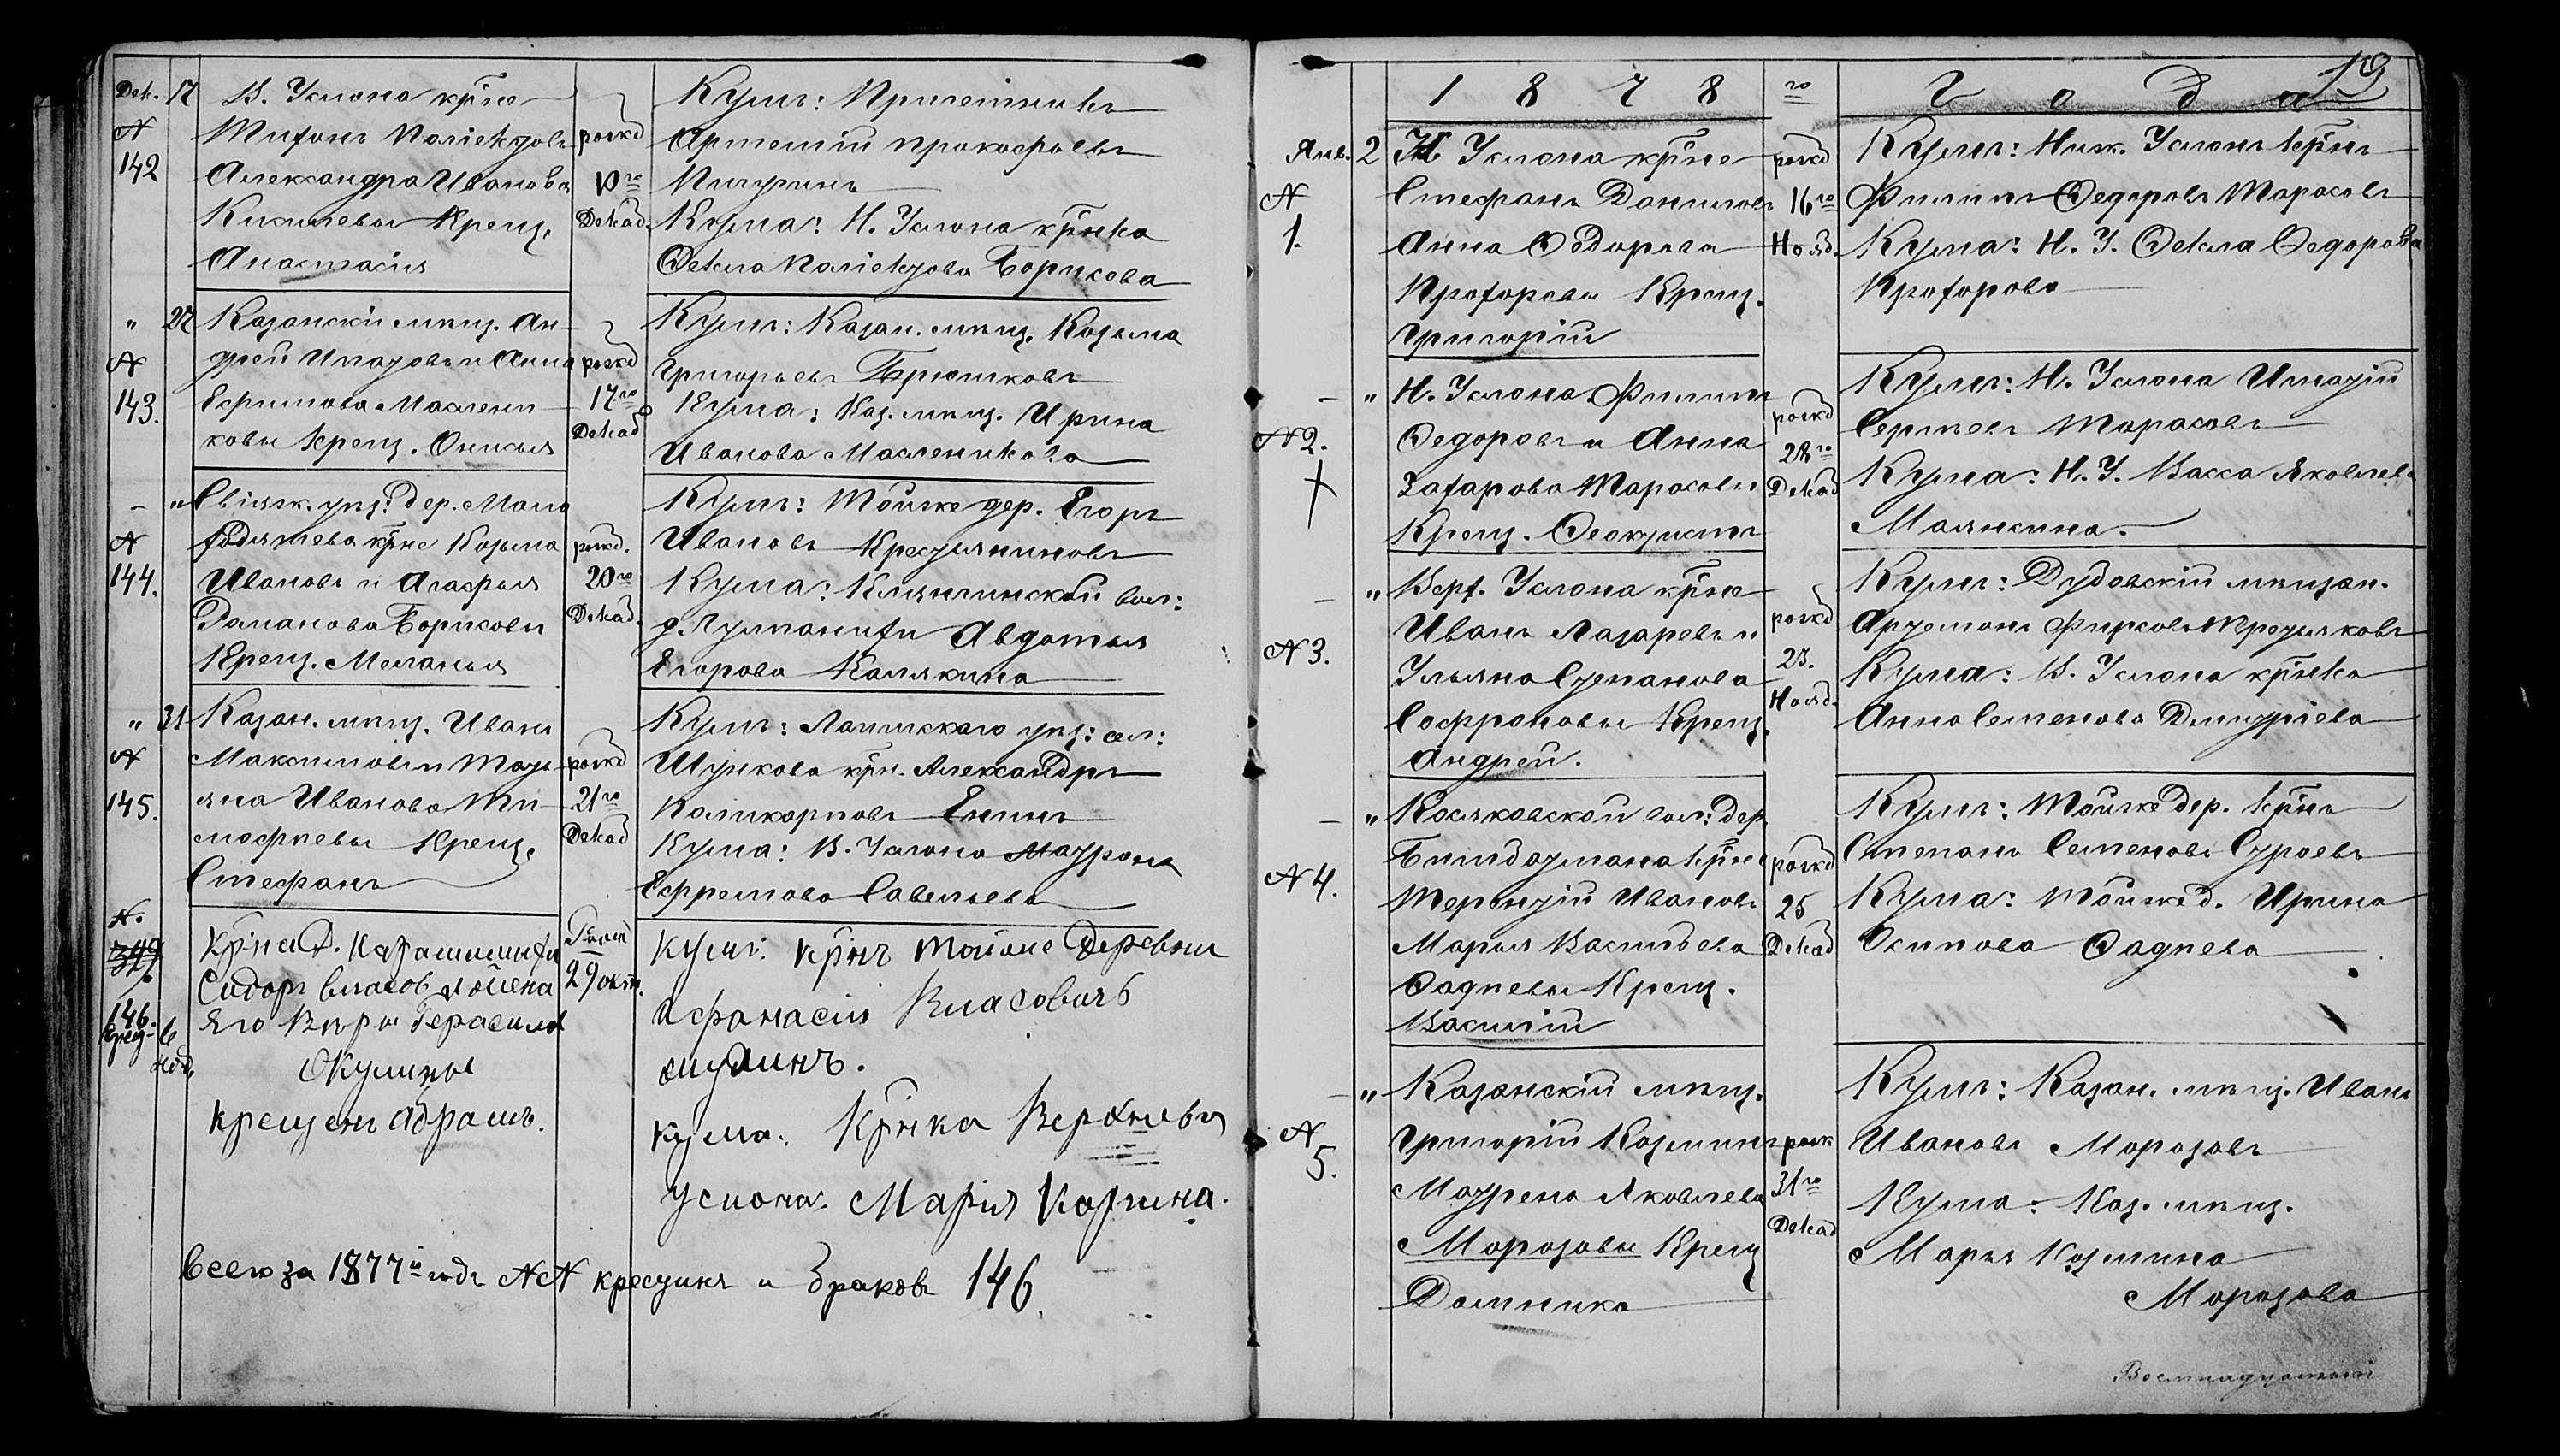 Дек. 17 В. Услона кр̃не
№ 142
Тихонъ Полiектовъ
Александра Иванова
Кинилевы Крещ.
Анастасiя
рожд
10го
Декаб.
Кумъ:
Артемiй Прокофьевъ
Пичугинъ
Кума: Н. Услона кр̃нка
Ѳекла Полiектова Борисова
" 27 Казанскiй мѣщ. Ан-
№ 143.
дрей Игнатьевъ и Анна
Ефимова Маслени-
ковы Крещ. Онисья
рожд
17го
Декаб
Кумъ: Казан. мѣщ. Козьма
Григорьевъ Брюшковъ
Кума: Каз. мѣщ. Ирина
Иванова Масленикова
- " Свiяж. уѣз: дер. Мало
№ 144.
кр̃не Козьма
Ивановъ и Агафья
Романова Борисовы
Крещ. Меланья
рожд.
20го
Декаб.
Кумъ: Тойже дер. Егоръ
Ивановъ Крестьяниновъ
Кума: Клянчинской вол:
д. Гуртанихи Авдотья
Егорова Калякина
" 31 Казан. мѣщ. Иванъ
№ 145.
Максимовъ и Тать-
яна Иванова Ти-
мофѣевы Крещ.
Стефанъ
рожд
21го
Декаб
Кумъ: Лаишскаго уѣз: сел:
Шункова кр̃н. Александръ
Поликарповъ Енинъ
Кума: В. Услона Маурона
Ефремова Савельева
№
146.
Крещ. 6
нояб.
кр̃на Д.
Сидоръ Власов и жена
Его Вѣра Герасимов
Окулины
крещенъ Абрамъ.
29 окт.
кумъ: кр̃нъ тойже Деревни
Афонасiй Власовичъ
кума: Кр̃нка Верхнева
услона. Марiя Карпина.
всего за 1877й годъ №№ крестинъ и браковъ 146.
19
1878го года
Янв. 2 Н. Услона кр̃не
№ 1.
Стефанъ Даниловъ
Анна Ѳедорова
Прохоровы Крещ.
Григорiй
рожд
16го
Нояб.
Кумъ: Ниж. Услонъ кр̃нъ
Филиппъ Ѳедоровъ Тарасовъ
Кума: Н. У. Ѳекла Ѳедорова
Прохорова
- " Н. Услона Филиппъ
№ 2.
Ѳедоровъ и Анна
Захарова Тарасовы
Крещ. Ѳеоктистъ
рожд
28го
Декаб
Кумъ: Н. Услона Игнатiй
Сергѣевъ Тарасовъ
Кума: Н. У. Васса Яковлева
Малянсина.
- " Верх. Услона кр̃не
№ 3.
Иванъ Лазаревъ и
Ульяна Степанова
Софроновы Крещ.
Андрей.
рожд
23.
Нояб.
Кумъ: Дубовскiй мѣщан.
Артемонъ Фирсовъ Третьяковъ
Кума: В. Услона кр̃нка
Анна Семенова Дмитрiева
- " Косяковской вол: дер.
№ 4.
Бишбатмана кр̃не
Терентiй Ивановъ
Марья Васильева
Ѳадѣевы Крещ.
Василiй
рожд
25
Декаб
Кумъ: Тойже дер. кр̃нъ
Степанъ Семеновъ Суроевъ
Кума: Тойже д. Ирина
Осипова Ѳадѣева
- " Казанскiй мѣщ.
№ 5.
Григорiй Козьминъ
Маурена Яковлева
Морозовы Крещ
Домника
рож
31го
Декаб
Кумъ: Казан. мѣщ. Иванъ
Ивановъ Морозовъ
Кума: Каз. мѣщ.
Марья Козьмина
Морозова